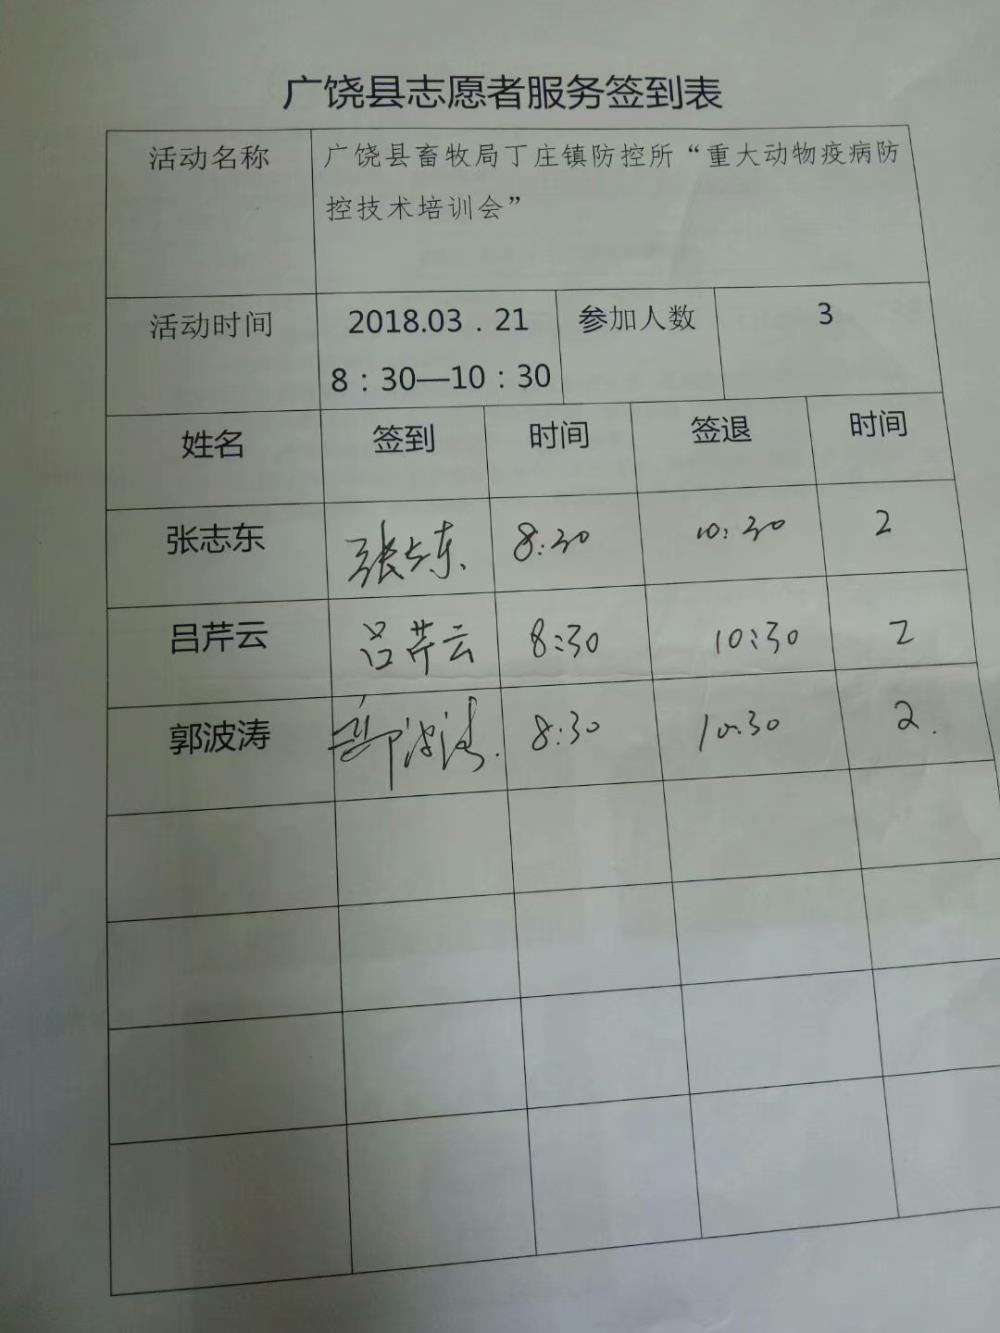 广饶县志愿者服务签到表
活动名称 广饶县畜牧局丁庄镇防控所“重大动物疫病防
控技术培训会”
活动时间 2018.03．21 参加人数 3
8：30—10：30
姓名 签到 时间 签退 时间
张志东 张志东 8:30 10:30 2
吕芹云 吕芹云 8:30 10:30 2
郭波涛 郭波涛 8:30 10:30 2